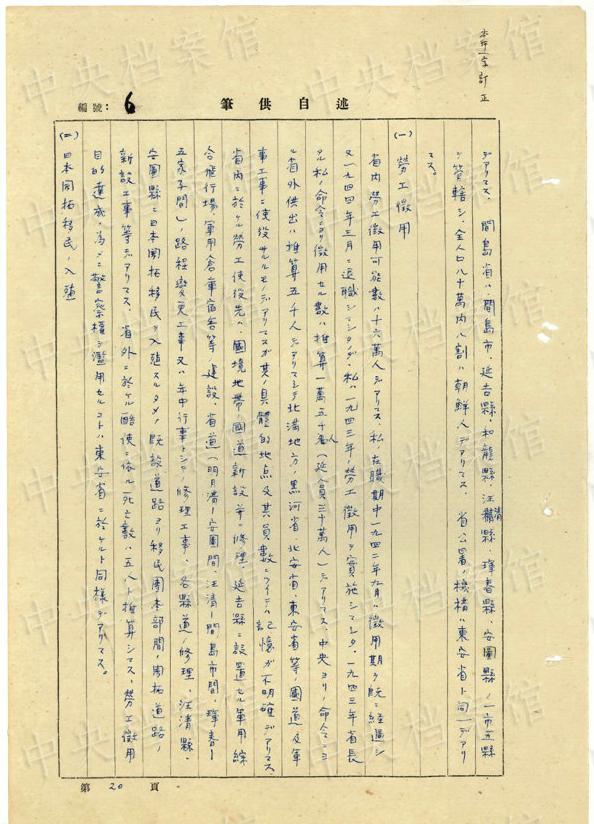 本葉一字訂正
筆供自述
編號：6
デアリマス。間島省ハ、間島市、延吉縣、和龍縣、汪清縣、琿春縣、安圖縣ノ一市五縣
ヲ管轄シ、全人口八十萬内八割ハ朝鮮人デアリマス。省公署ノ機構ハ東安省ト同一デアリ
マス。
(一) 勞工徴用
省内勞工徴用可能数ハ十六萬人デアリマス。私在職期中一九四二年九月ハ徴用期ヲ既ニ経過シ
又一九四四年三月ニ退職シマシタノデ、私ハ一九四三年勞工徴用ヲ實施シマシタ。一九四三年省長
タル私ノ命令ニヨリ徴用セル数ハ推算一萬五千人（延人員三十萬人）デアリマス。中央ヨリノ命令ニヨ
ル省外供出ハ推算五千人デアリマシテ北満地方、黒河省、北安省、東安省等ノ國道及軍
事工事ニ使役サレルモノデアリマスガ其ノ具體的地点及其員數ニツイテハ記憶ガ不明確デアリマス
省内ニ於ケル勞工使役先ハ、國境地帯ノ國道新設並ニ修理、延吉縣ニ設置セル軍用綜
合飛行場、軍用倉庫宿舎等ノ建設、省道（明月溝ー安圖間、汪清ー間島市間、琿春ー
五家子間）ノ路程變更工事又ハ年中行事トシテノ修理工事、各縣道ノ修理、汪清縣、
安圖縣ニ日本開拓移民ヲ入殖スルタメノ既設道路ヨリ移民團本部間ノ開拓道路ノ
新設工事等デアリマス。省外ニ於ケル酷使ニ依ル死亡數ハ五人ト推算シマス。勞工徴用
目的達成ノ為メニ警察権ヲ濫用セルコトハ東安省ニ於ケルト同様デアリマス。
(二) 日本開拓移民ノ入殖
第 20 頁